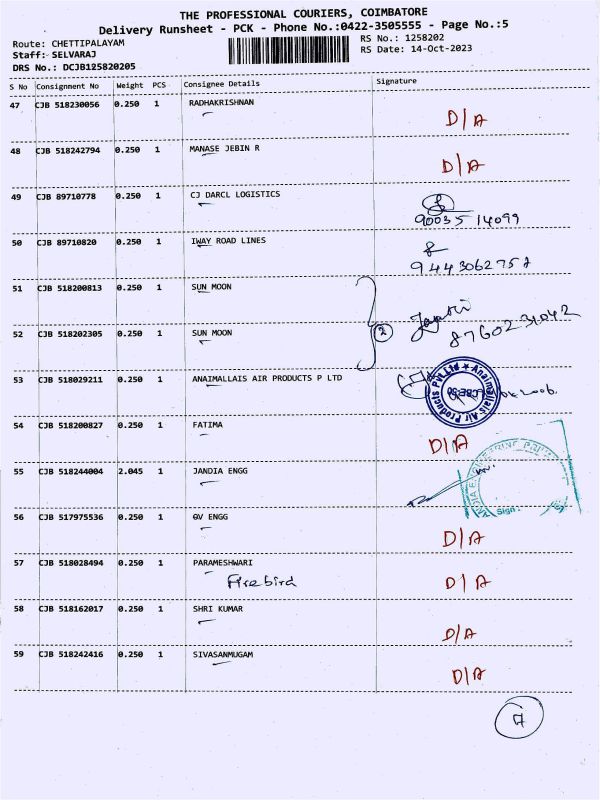 THE PROFESSIONAL COURIERS, COIMBATORE
Delivery Runsheet - PCK - Phone No.:0422-3505555 - Page No.:5
Route: CHETTIPALAYAM RS No.: 1258202
Staff: SELVARAJ RS Date: 14-Oct-2023
DRS No.: DCJB125820205
S No Consignment No Weight PCS Consignee Details Signature
47 CJB 518230056 0.250 1 RADHAKRISHNAN D/A
48 CJB 518242794 0.250 1 MANASE JEBIN R D/A
49 CJB 89710778 0.250 1 CJ DARCL LOGISTICS
90035 14099
50 CJB 89710820 0.250 1 IWAY ROAD LINES
9443062757
51 CJB 518200813 0.250 1 SUN MOON
52 CJB 518202305 0.250 1 SUN MOON 2
53 CJB 518029211 0.250 1 ANAIMALLAIS AIR PRODUCTS P LTD
Anaimallais Air Products Pvt Ltd
54 CJB 518200827 0.250 1 FATIMA D/A
55 CJB 518244004 2.045 1 JANDIA ENGG
Sign:
56 CJB 517975536 0.250 1 GV ENGG D/A
57 CJB 518028494 0.250 1 PARAMESHWARI D/A
Firebird
58 CJB 518162017 0.250 1 SHRI KUMAR D/A
59 CJB 518242416 0.250 1 SIVASANMUGAM D/A
7